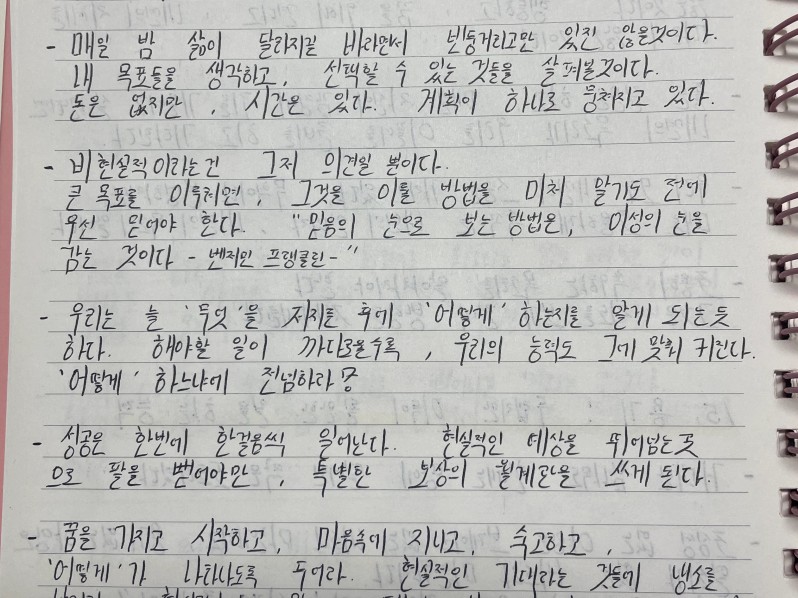 - 매일 밤 삶이 달라지길 바라면서 빈둥거리고만 있진 않을것이다.
내 목표들을 생각하고, 선택할 수 있는 것들을 살펴볼것이다.
돈은 없지만, 시간은 있다. 계획이 하나로 뭉쳐지고 있다.
- 비현실적이라는건 그저 의견일 뿐이다.
큰 목표를 이룩하려면, 그것을 이룰 방법을 미처 알기도 전에
우선 믿어야 한다. "믿음의 눈으로 보는 방법은, 이성의 눈을
감는 것이다 - 벤저민 프랭클린 - "
- 우리는 늘 '무엇'을 저지른 후에 '어떻게' 하는지를 알게 되는듯
하다. 해야할 일이 까다로울수록, 우리의 능력도 그에 맞춰 커진다.
'어떻게' 하느냐에 전념하라?
- 성공은 한번에 한걸음씩 일어난다. 현실적인 예상을 뛰어넘는곳
으로 팔을 뻗어야만, 특별한 보상의 월계관을 쓰게 된다.
- 꿈을 가지고 시작하고, 마음속에 지니고, 숙고하고,
'어떻게'가 나타나도록 두어라. 현실적인 기대라는 것들에 냉소를